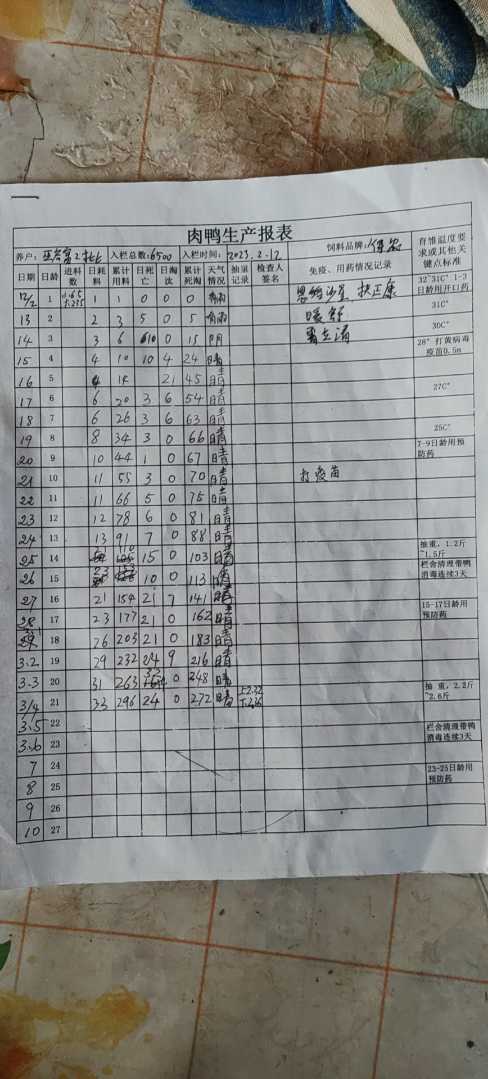 肉鸭生产报表
养户: 入栏总数:6500 入栏时间:2023.2.12 饲料品牌: 育雏温度要求或其他关键点标准
日期 日龄 进料数 日耗料 累计用料 日死亡 日淘汰 累计死淘 天气情况 抽重记录 检查人签名 免疫、用药情况记录
12/2 1 1 1 0 0 0 32~31C° 1-3日龄用开口药
13 2 2 3 5 0 5 31C°
14 3 3 6 10 0 15 阴 30C°
15 4 4 10 10 4 24 晴 28° 打黄病毒疫苗0.5m
16 5 21 45 晴
17 6 6 20 3 6 54 晴 27C°
18 7 6 26 3 6 63 晴
19 8 8 34 3 0 66 晴 25C°
20 9 10 44 1 0 67 晴 7-9日龄用预防药
21 10 11 55 3 0 70 晴 打疫苗
22 11 11 66 5 0 75 晴
23 12 12 78 6 0 81 晴
24 13 13 91 7 0 88 晴
25 14 15 0 103 晴 抽重,1.2斤~1.5斤
26 15 10 0 113 栏舍清理带鸭消毒连续3天
27 16 21 154 21 7 141 晴
28 17 23 177 21 0 162 晴 15-17日龄用预防药
29 18 26 203 21 0 183 晴
3.2 19 29 232 24 9 216 晴
3.3 20 31 263 0 248 晴
3/4 21 33 296 24 0 272 晴 抽 重,2.2斤~2.6斤
3.5 22
3.6 23 栏舍清理带鸭消毒连续3天
7 24
8 25 23-25日龄用预防药
9 26
10 27